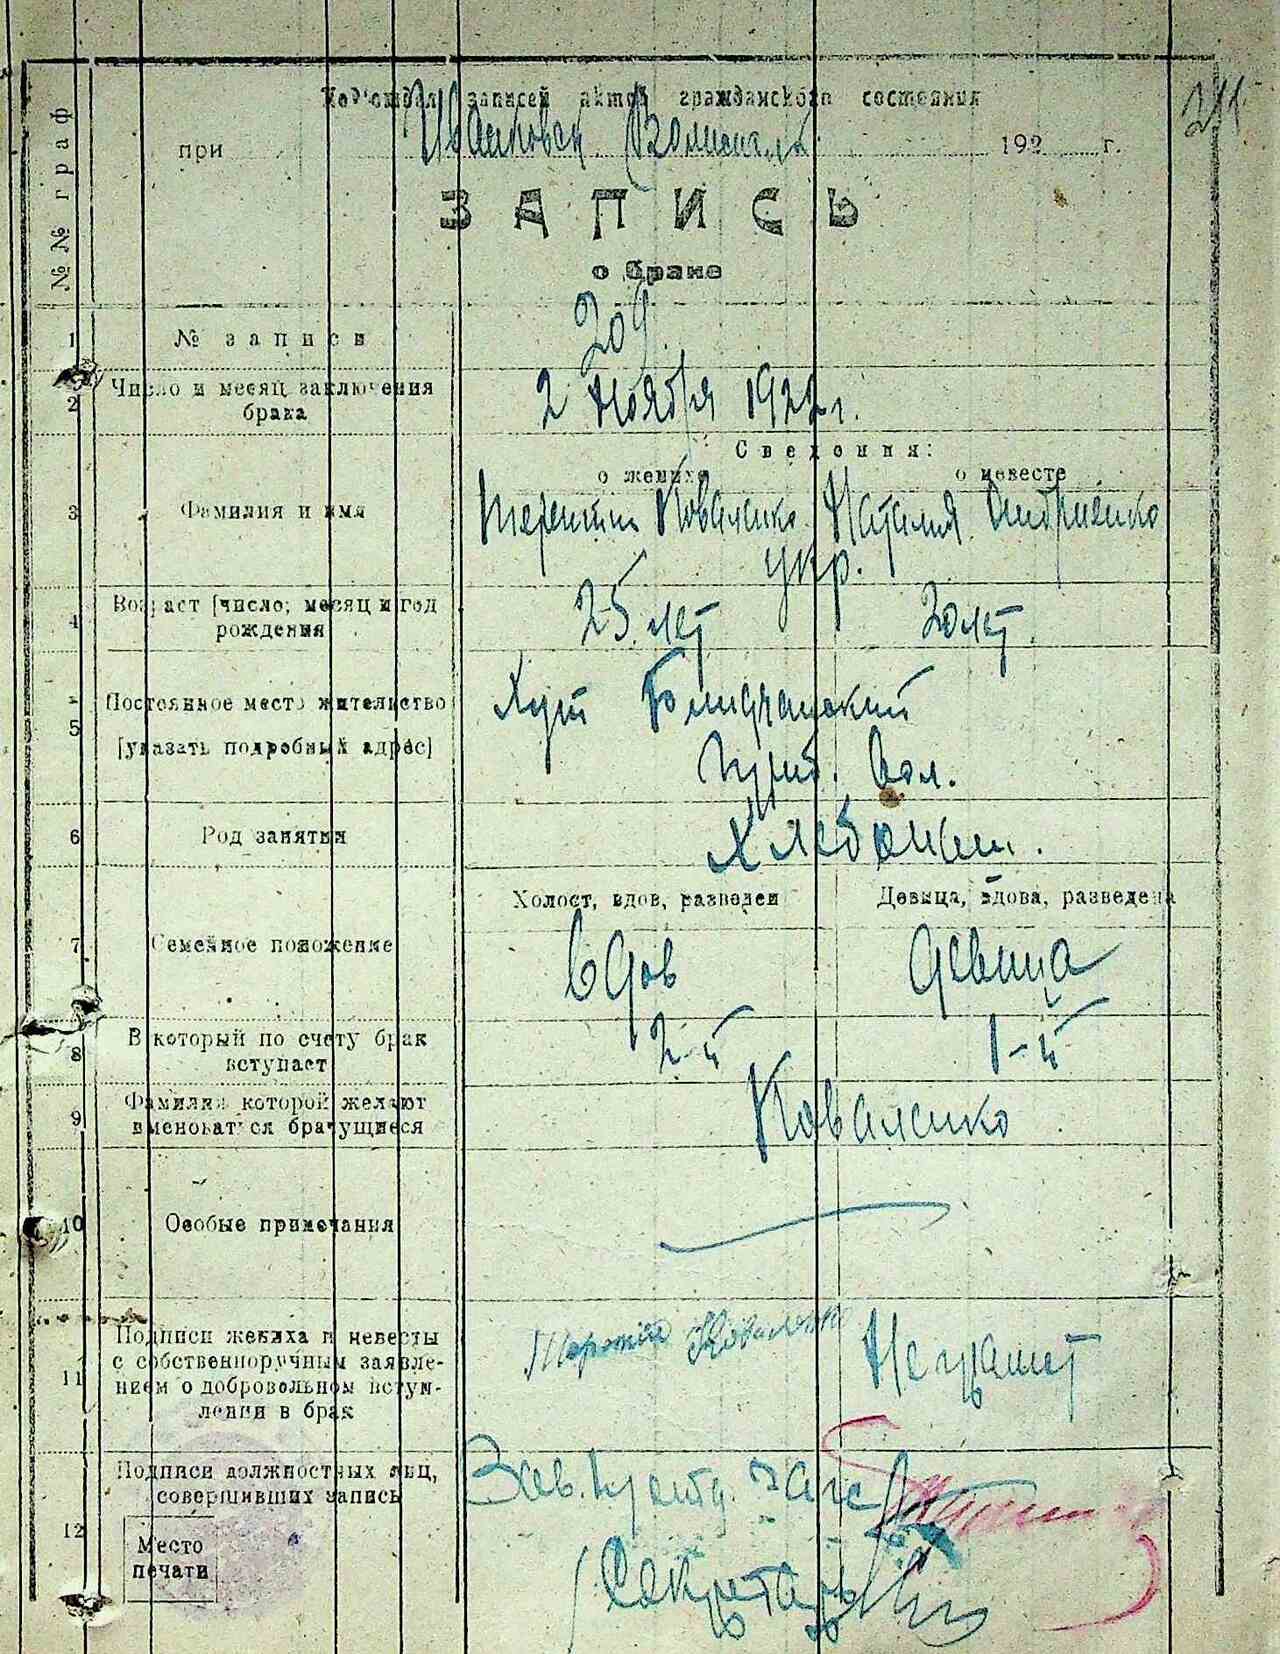 Под'отдел записей актов гражданского состояния
при 192 г.
ЗАПИСЬ
о браке
№№ граф
1 № записи 209.
2 Число и месяц заключения брака 2 Ноября 1922 г.
Сведения:
о женихе о невесте
3 Фамилия и имя Терентий Коваленко Наталия Андриенко
укр.
4 Возраст [число, месяц и год рождения 25 лет 20 лет.
5 Постоянное место жительство Хут
[указать подробный адрес] вол.
6 Род занятия Хлебопаш.
Холост, вдов, разведен Девица, вдова, разведена
7 Семейное положение вдов девица
8 В который по счету брак вступает 2-й 1-й
9 Фамилия которой желают именоваться брачущиеся Коваленко
10 Особые примечания
11 Подписи жениха и невесты
с собственноручным заявле-
нием о добровольном вступ-
лении в брак
Терентий Коваленко Неграмот
12 Подписи должностных лиц,
совершивших запись
Зав. п/отд. загс
Место
печати
Секретарь